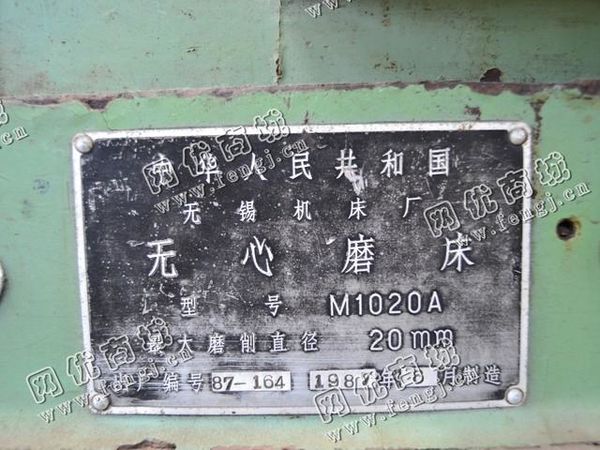 中华人民共和国
无锡机床厂
无心磨床
型号 M1020A
最大磨削直径 20mm
产编号 87-164 1987年 月製造
网优商坊
www.fengj.cn
网优商坊
www.fengj.cn
网优商坊
www.fengj.cn
网优商坊
www.fengj.cn